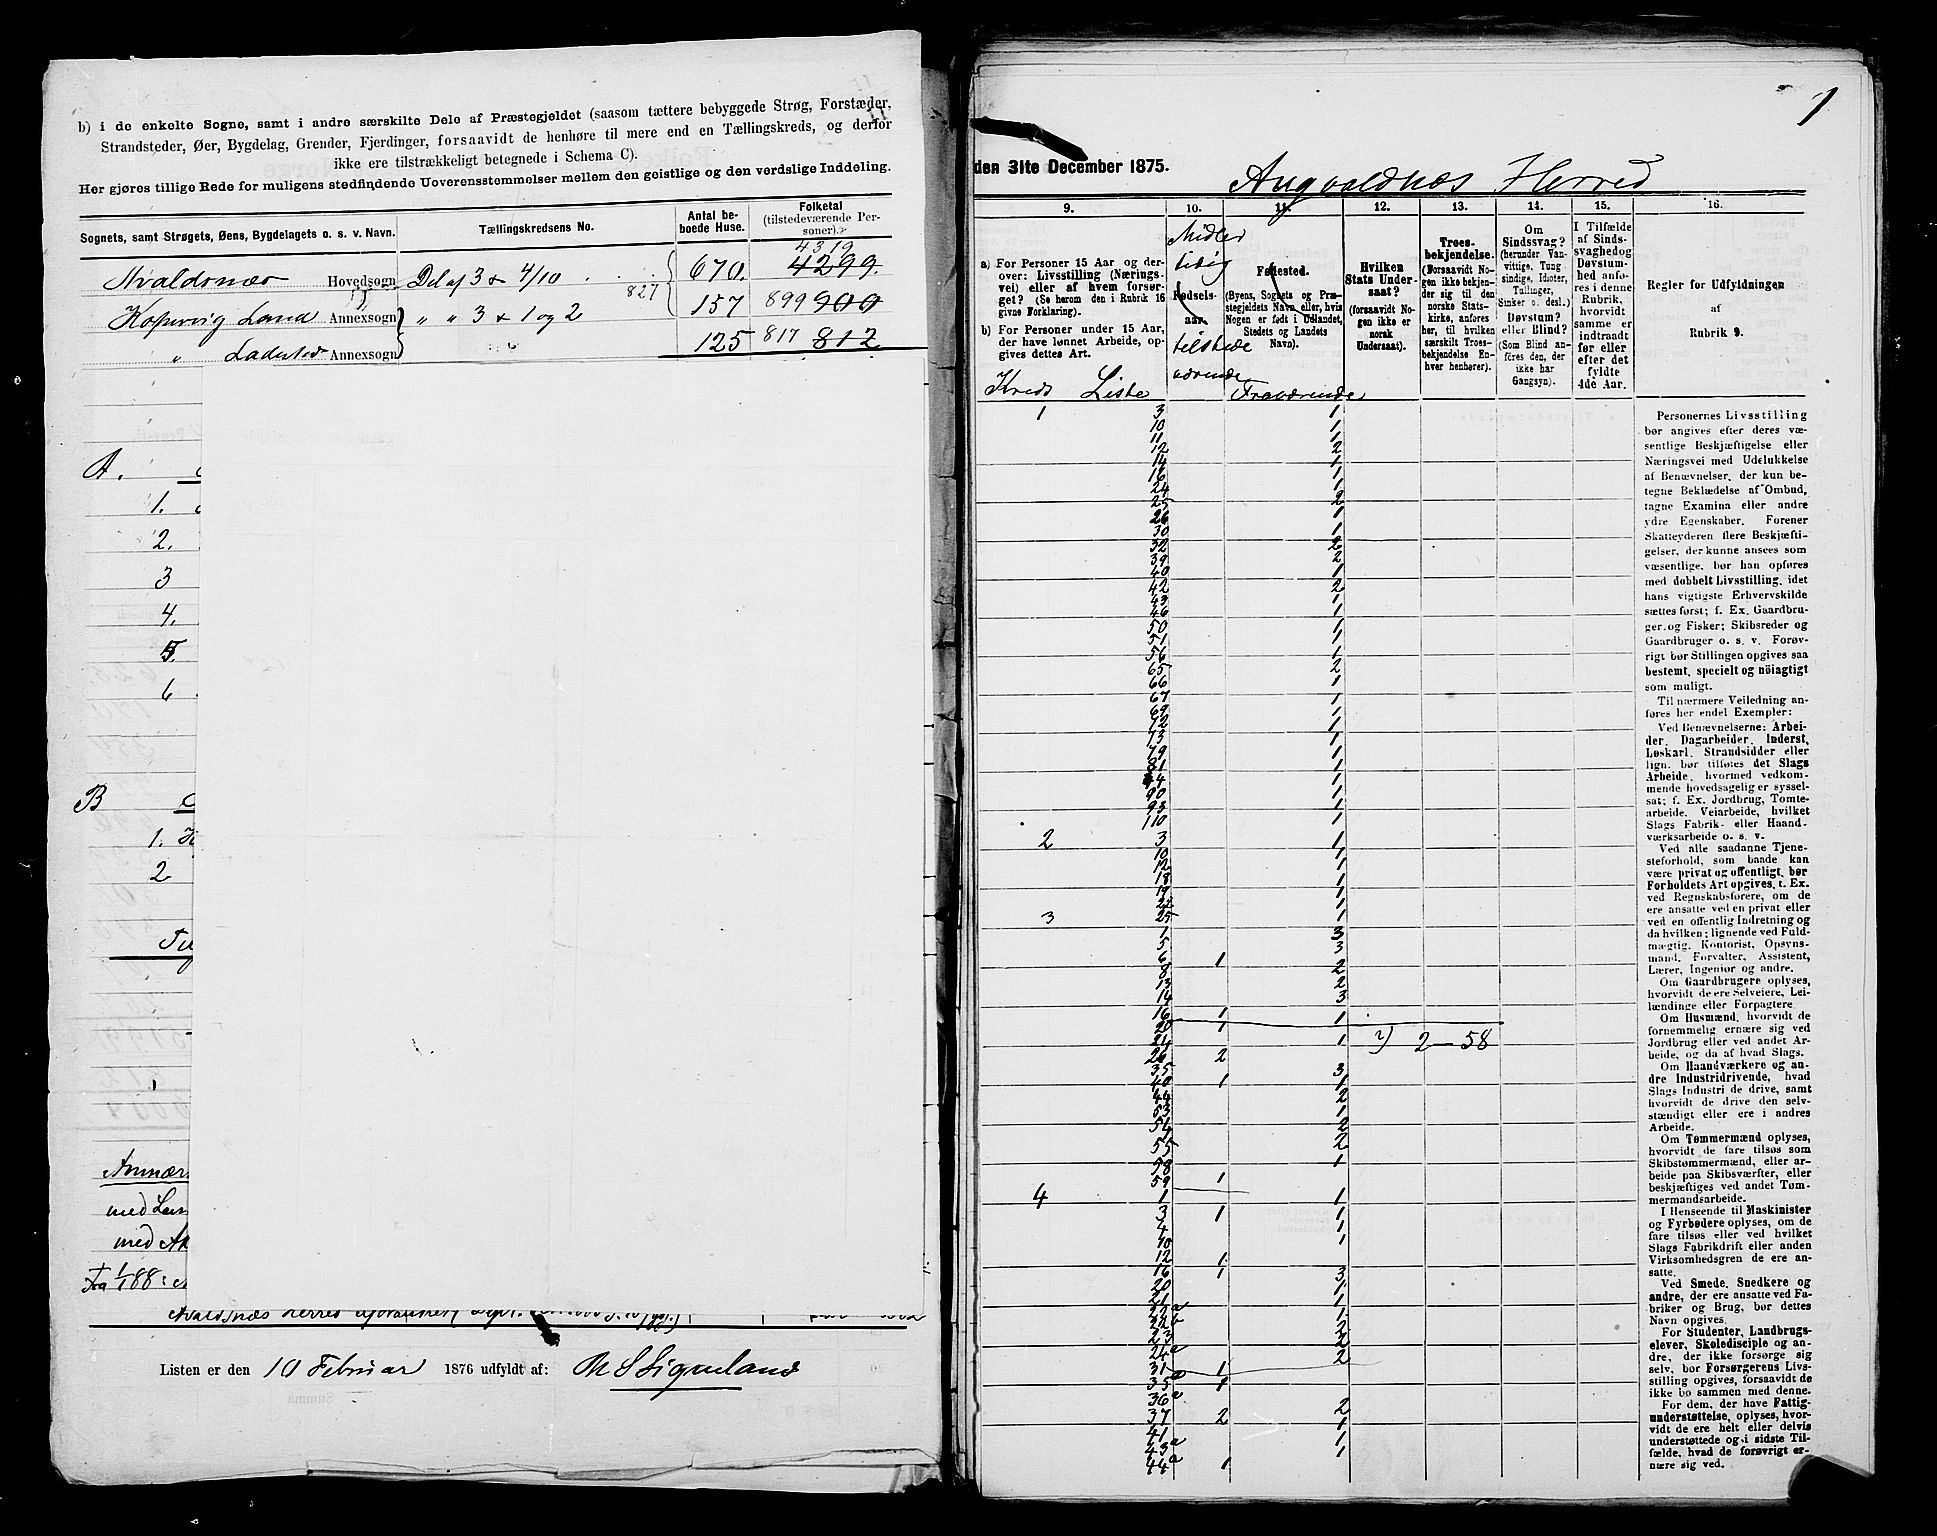 b) i de enkelte Sogne, samt i andre særskilte Dele af Præstegjeldet (saasom tættere bebyggede Strøg, Forstæder,
Strandsteder, Øer, Bygdelag, Grender, Fjerdinger, forsaavidt de henhøre til mere end en Tællingskreds, og derfor
ikke ere tilstrækkeligt betegnede i Schema C).
Her gjøres tillige Rede for muligens stedfindende Uoverensstemmelser mellem den geistlige og den verdslige Inddeling.
Sognets, samt Strøgets, Øens, Bygdelagets o. s. v. Navn.
Tællingskredsens No.
Antal be-
boede Huse.
Folketal
(tilstedeværende Per-
soner).
4319
Avaldsnæs Hovedsogn Del af 3 & 4/10 670. 4299.
827
Kopervig Land Annexsogn „ „ 3 & 1 og 2 157 899 900
„ Ladested Annexsogn 125 817 812
A.
1.
2.
3
4.
5.
6.
B
1.
2
Listen er den 10 Februar 1876 udfyldt af:
1
den 31te December 1875.
Augvaldnæs Herred
9.
a) For Personer 15 Aar og der-
over: Livsstilling (Nærings-
vei) eller af hvem forsør-
get? (Se herom den i Rubrik 16
givne Forklaring).
b) For Personer under 15 Aar,
der have lønnet Arbeide, op-
gives dettes Art.
Kreds Liste
10.
Midler
tidig
Fødsels-
aar.
tilstede
værende
11.
Fødested.
(Byens, Sognets og Præ-
stegjeldets Navn eller, hvis
Nogen er født i Udlandet,
Stedets og Landets
Navn).
Fraværende
12.
Hvilken
Stats Under-
saat?
(forsaavidt No-
gen ikke er
norsk
Undersaat).
13.
Troes-
bekjendelse.
(Forsaavidt No-
gen ikke bekjen-
der sig til den
norske Stats-
kirke, anføres
her, til hvilken
særskilt Troes-
bekjendelse En-
hver henhører).
14.
Om
Sindssvag?
(herunder Van-
vittige, Tung
sindige, Idioter,
Tullinger,
Sinker o. desl.)
Døvstum?
eller Blind?
(Som Blind an-
føres den, der
ikke har
Gangsyn).
15.
I Tilfælde
af Sinds-
svaghedog
Døvstum-
hed anfø-
res i denne
Rubrik,
hvorvidt
samme er
indtraadt
før eller
efter det
fyldte
4de Aar.
16.
Regler for Udfyldningen
af
Rubrik 9.
1 3 1
10 1
11 1
12 2
14 1
16 1
24 1
25 2
26 1
30 1
32 2
39 2
40 1
42 2
43 1
46 1
50 1
51 1
56 1
65 2
66 1
67 1
69 1
72 1
73 1
79 1
81 1
90 1
93 1
110 1
2 3 1
10 1
12 1
18 1
19 1
3 25 1
1 3
5 3
6 1 2
8 2
13 2
14 3
16 1 1
20 1
24 1 2) 2–58
26 2
35 3
40 1 1
44 2
53 1
54 2
55 2
58 1
59 1
4 1 1
3 1 1
4 1
10 1
12 1
16 1 3
20 1
21 1
22 a 1
22 b 2
23 2
24 a 2
31 1
35 a 1
36 a
37 2 2
41 1
43 a 1
44 a 1
Personernes Livsstilling
bør angives efter deres væ-
sentlige Beskjæftigelse eller
Næringsvei med Udelukkelse
af Benævnelser, der kun be-
tegne Beklædelse af Ombud,
tagne Examina eller andre
ydre Egenskaber. Forener
Skatteyderen flere Beskjæfti-
gelser, der kunne ansees som
væsentlige, bør han opføres
med dobbelt Livsstilling, idet
hans vigtigste Erhvervskilde
sættes først; f. Ex. Gaardbru-
ger og Fisker; Skibsreder og
Gaardbruger o. s. v. Forøv-
rigt bør Stillingen opgives saa
bestemt, specielt og nöiagtigt
som muligt.
Til nærmere Veiledning an-
føres her endel Exempler:
Ved Benævnelserne: Arbei-
der, Dagarbeider, Inderst,
Løskarl, Strandsidder eller
lign. bør tilføies det Slags
Arbeide, hvormed vedkom-
mende hovedsagelig er syssel-
sat; f. Ex. Jordbrug, Tomte-
arbeide, Veiarbeide, hvilket
Slags Fabrik- eller Haand-
værksarbeide o. s. v.
Ved alle saadanne Tjene-
steforhold, som baade kan
være privat og offentligt, bør
Forholdets Art opgives, t. Ex.
ved Regnskabsførere, om de
ere ansatte ved en privat eller
ved en offentlig Indretning og
da hvilken; lignende ved Fuld-
mægtig, Kontorist, Opsyns-
mand, Forvalter, Assistent,
Lærer, Ingeniør og andre.
Om Gaardbrugere oplyses,
hvorvidt de ere Selveiere, Lei-
lændinge eller Forpagtere
Om Husmænd, hvorvidt de
fornemmelig ernære sig ved
Jordbrug eller ved andet Ar-
beide, og da af hvad Slags.
Om Haandværkere og an-
dre Industridrivende, hvad
Slags Industri de drive, samt
hvorvidt de drive den selv-
stændigt eller ere i andres
Arbeide.
Om Tømmermænd oplyses,
hvorvidt de fare tilsøs som
Skibstømmermænd, eller ar-
beide paa Skibsværfter, eller
beskjæftiges ved andet Tøm-
mermandsarbeide.
I Henseende til Maskinister
og Fyrbødere oplyses, om de
fare tilsøs eller ved hvilket
Slags Fabrikdrift eller anden
Virksomhedsgren de ere an-
satte.
Ved Smede, Snedkere og
andre, der ere ansatte ved Fa-
briker og Brug, bør dettes
Navn opgives.
For Studenter, Landbrugs-
elever, Skoledisciple og an-
dre, der ikke forsørge sig
selv, bør Forsørgerens Livs-
stilling opgives, forsaavidt de
ikke bo sammen med denne.
For dem, der have Fattig-
understøttelse, oplyses, hvor-
vidt de ere helt eller delvis
understøttede og i sidste Til-
fælde, hvad de forøvrigt er-
nære sig ved.